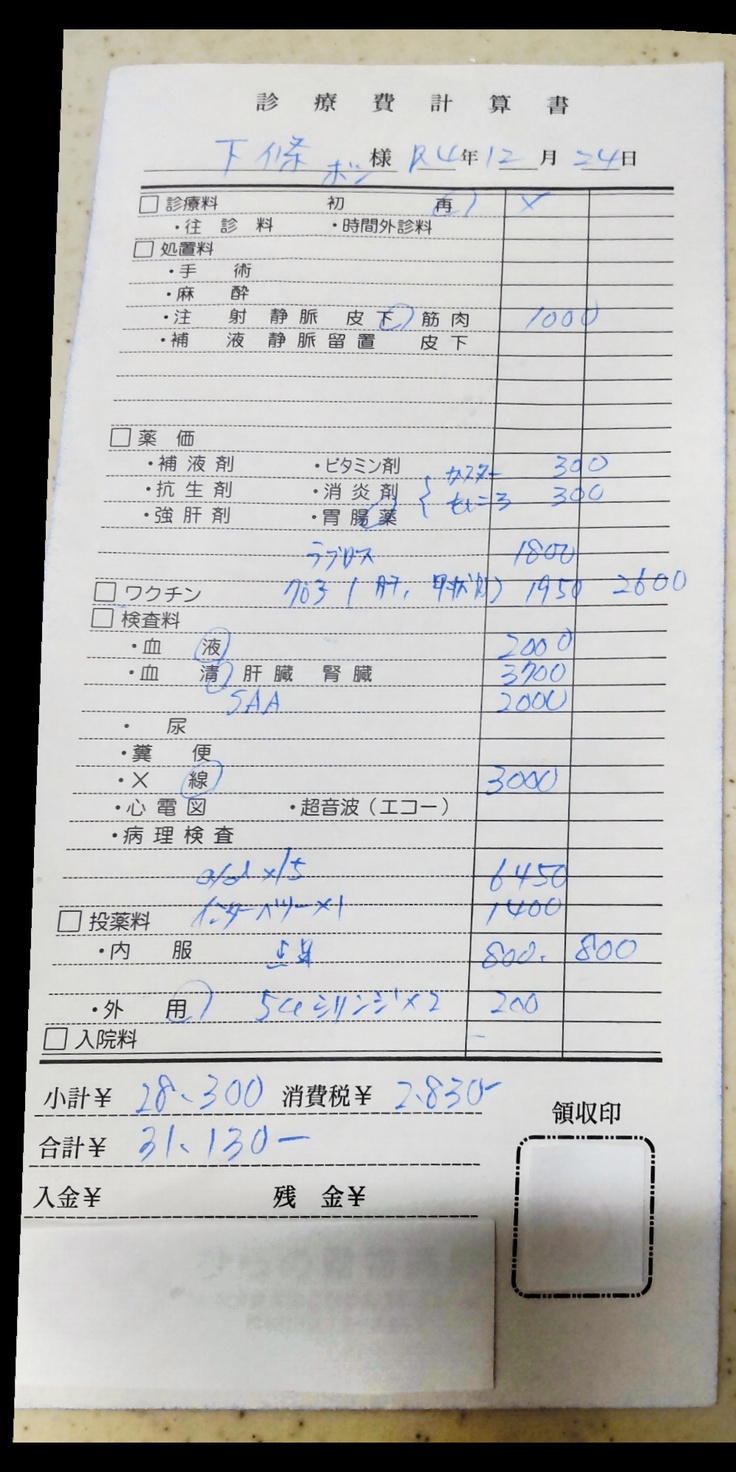 診療費計算書
下條 ボン 様 R4年12月24日
□診療料 初 再
・往診料 ・時間外診料
□処置料
・手術
・麻酔
・注射 静脈 皮下 筋肉 1000
・補液 静脈留置 皮下
□薬価
・補液剤 ・ビタミン剤 300
・抗生剤 ・消炎剤 300
・強肝剤 ・胃腸薬
ラプロス 1800
□ワクチン 1950 2600
□検査料
・血液 2000
・血清 肝臓 腎臓 3700
SAA 2000
・尿
・糞便
・X線 3000
・心電図 ・超音波（エコー）
・病理検査
a/d x15 6450
インターベリーx1 1400
□投薬料
・内服 800. 800
・外用 5ccシリンジx2 200
□入院料
小計¥ 28、300 消費税¥ 2.830-
合計¥ 31、130-
領収印
入金¥ 残金¥